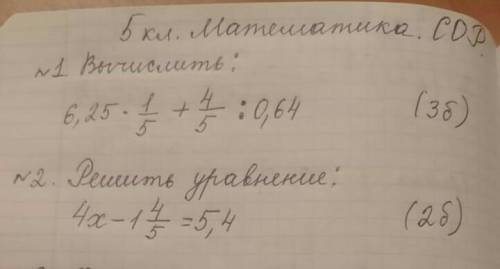 5 кл. Математика. СОР.
№1 Вычислить:
6,25 · 1/5 + 4/5 : 0,64 (3б)
№2. Решить уравнение:
4х - 1 4/5 = 5,4 (2б)